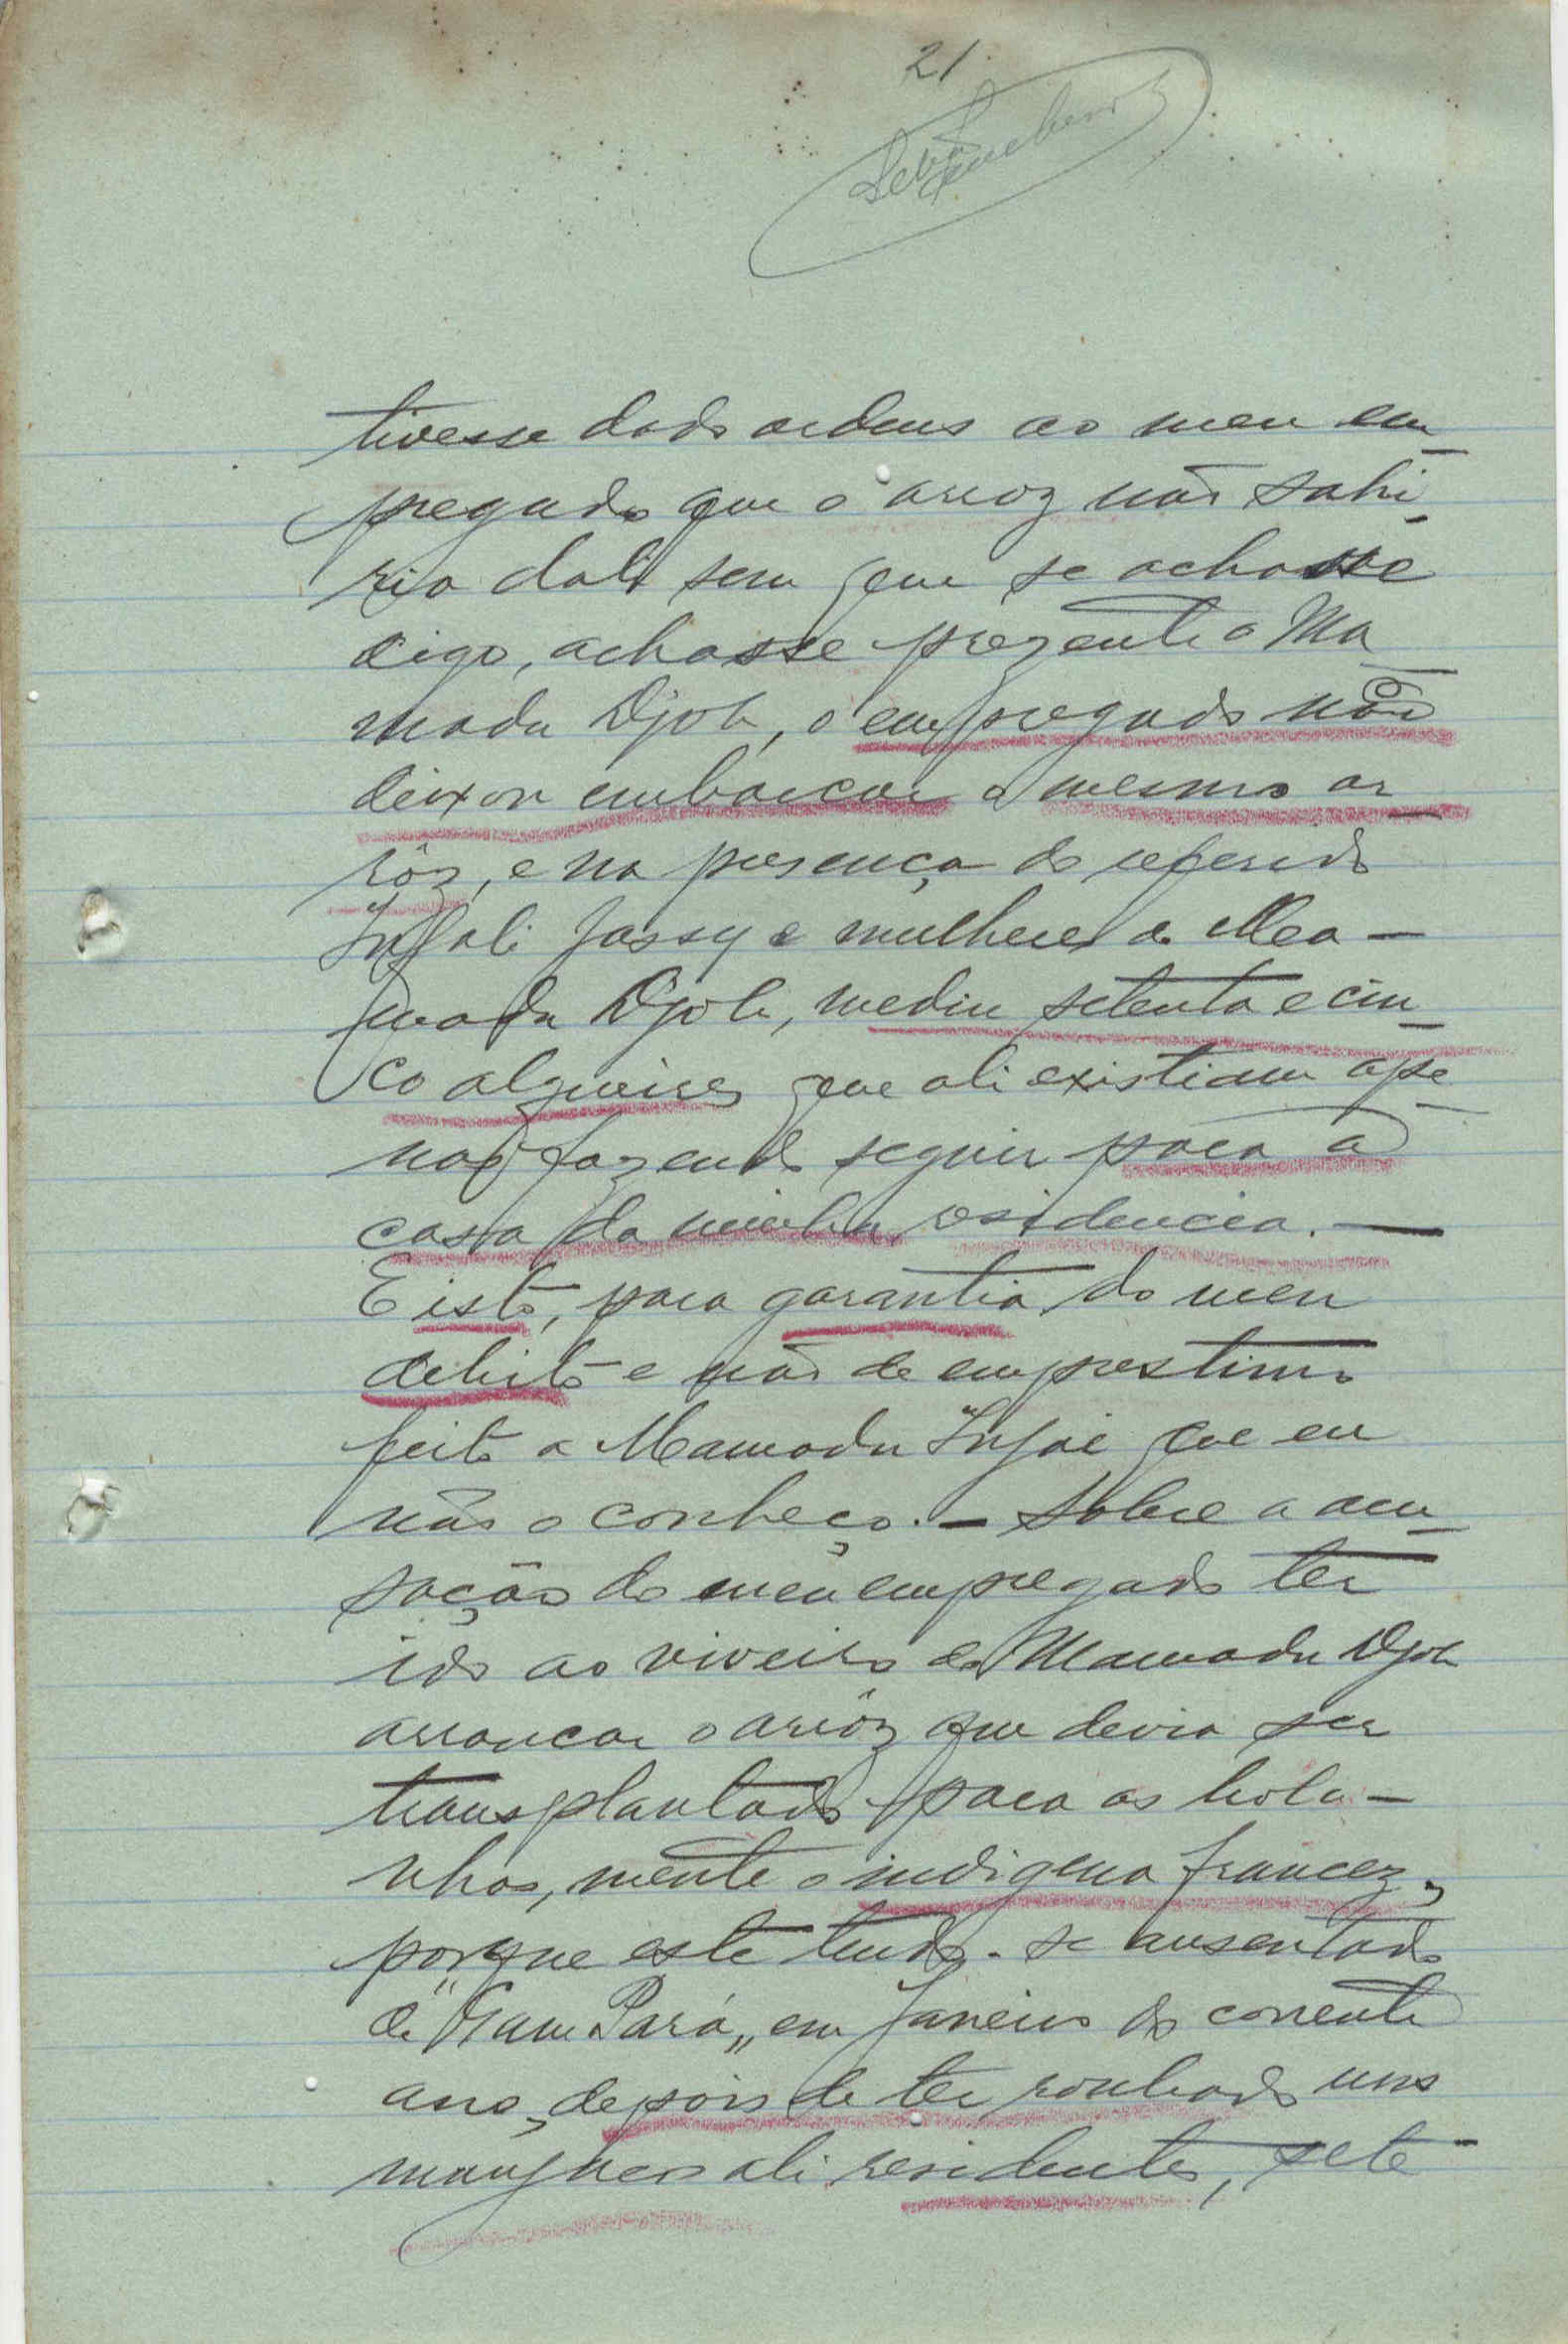 21
tivesse dado ordens ao meu em-
pregado que o arroz não sahi-
ria dali sem que se achasse
digo, achasse prezente o Ma-
madu Djob, o empregado não
deixou embarcar o mesmo ar-
rôz, e na presença do referido
Infali Jassy e mulheres de Ma-
madu Djob, mediu setenta e cin-
co alqueires que ali existiam ape-
nas fazendo seguir para a
casa da minha residencia. —
E isto, para garantia do meu
debito e não de emprestimo
feito a Mamadu Injai que eu
não o conheço. — Sobre a acu-
sação do meu empregado ter
ido ao viveiro de Mamadu Djob
arrancar o arrôz que devia ser
transplantado para as bola-
nhas, mente o indigena francez,
porque este tendo-se ausentado
de "Gam Pará„ em Janeiro do corrente
ano, depois de ter roubado uns
ali residentes, sete